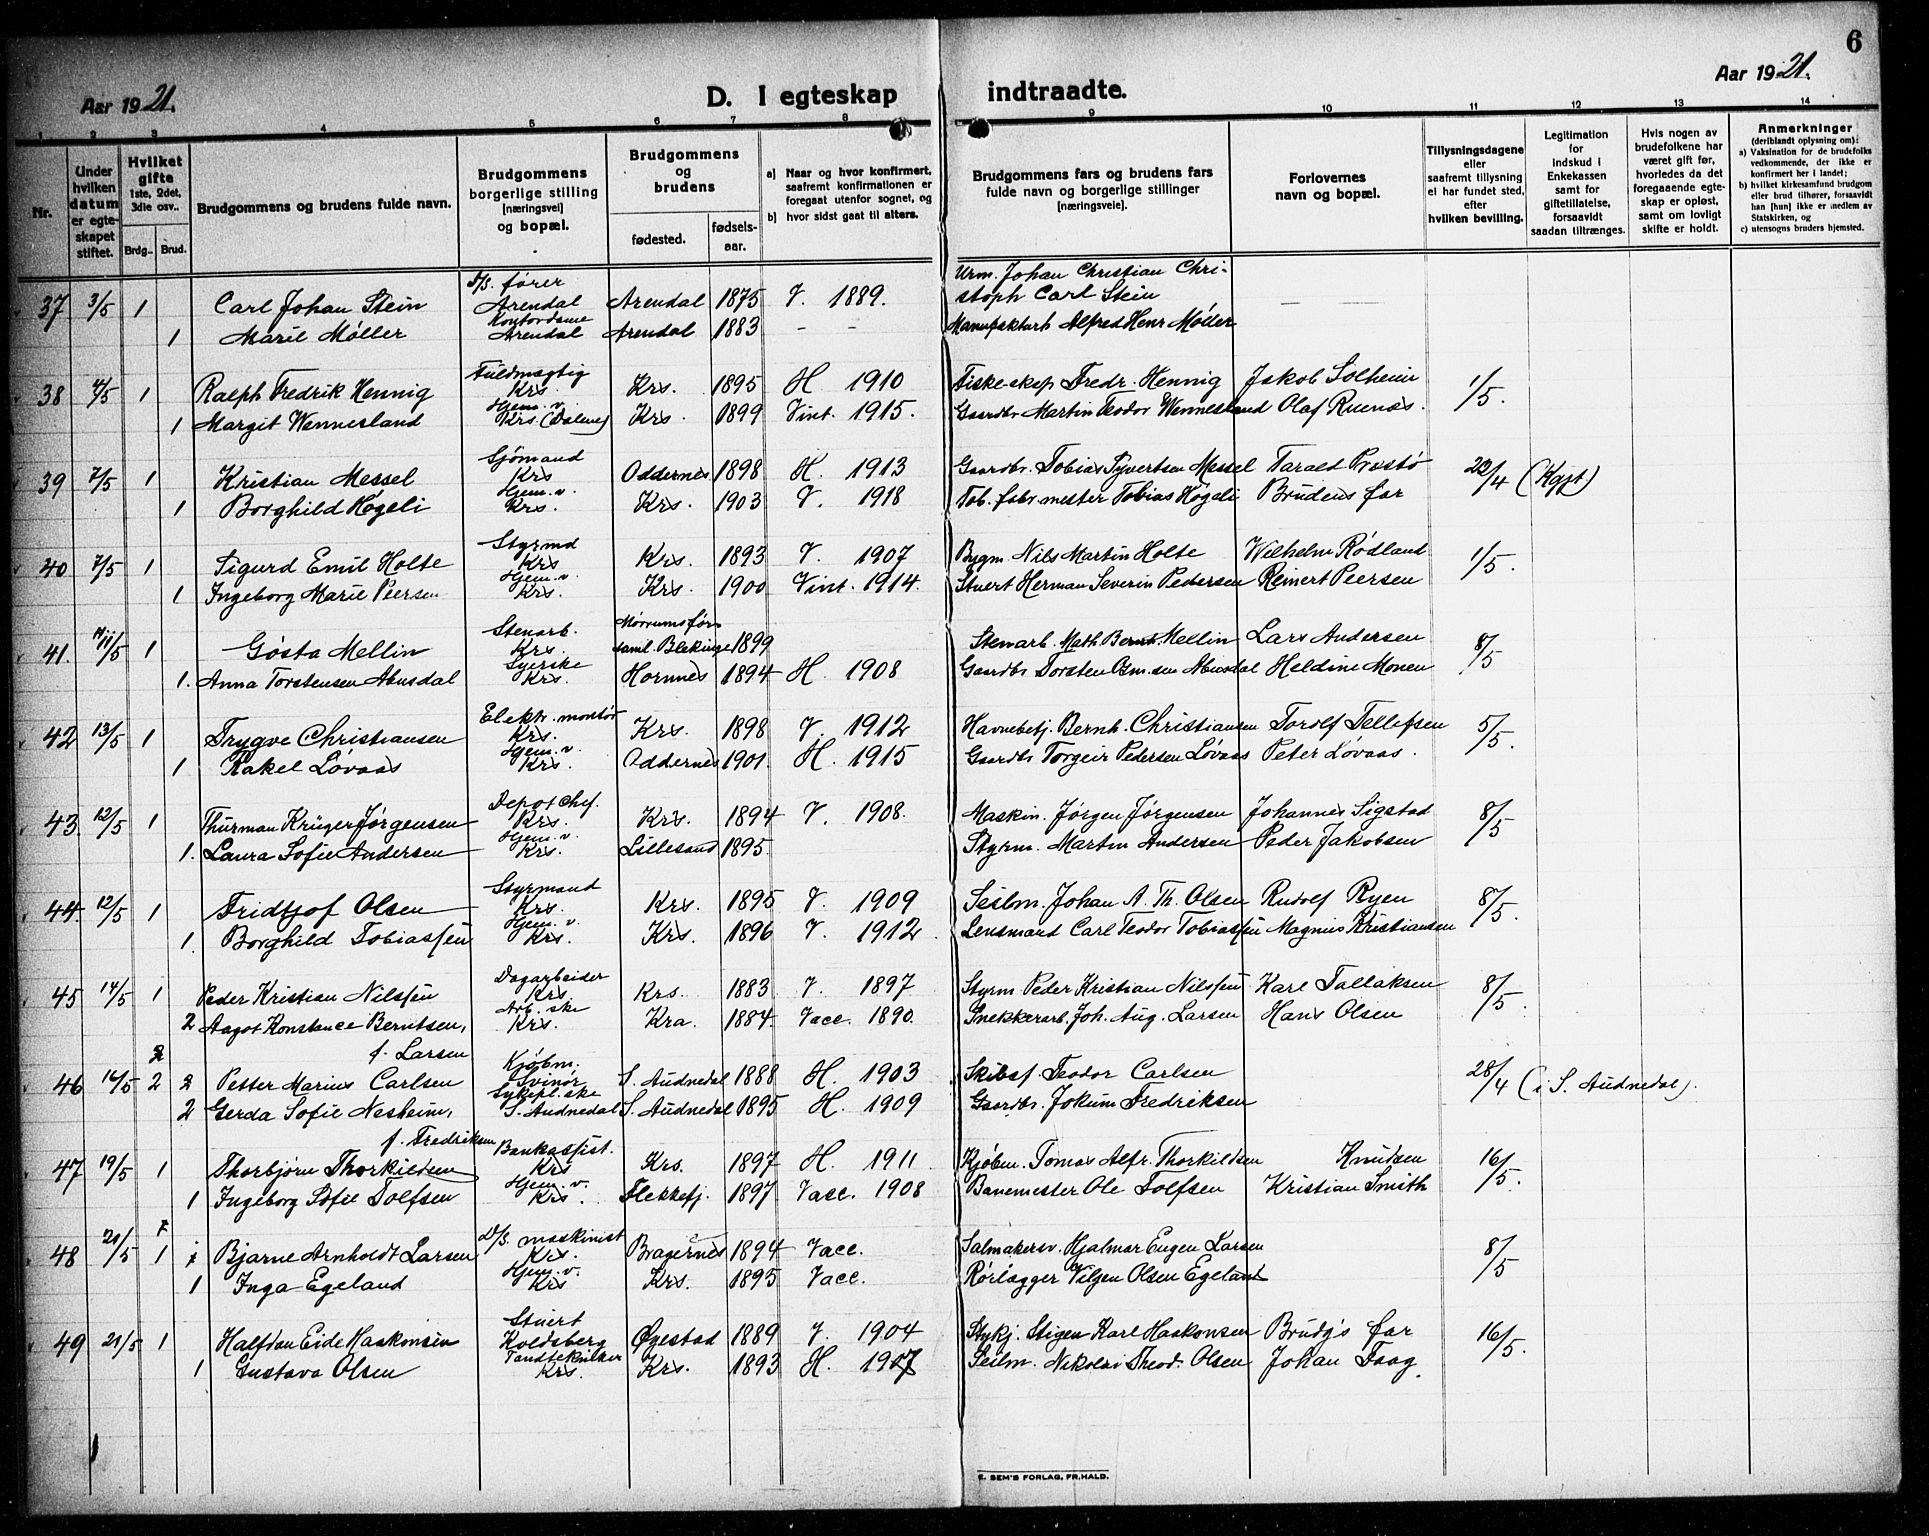 6
Aar 1921.
D. I egteskap indtraadte.
Aar 1921.
1 2 3 4 5 6 7 8 9 10 11 12 13 14
Nr.
Under hvilken datum er egteskapet stiftet.
Hvilket gifte 1ste, 2det, 3die osv..
Brdg.. Brud.
Brudgommens og brudens fulde navn.
Brudgommens borgerlige stilling [næringsvei] og bopæl.
Brudgommens og brudens
fødested. fødselsaar.
a) Naar og hvor konfirmert, saafremt konfirmationen er foregaat utenfor sognet, og
b) hvor sidst gaat til alters.
Brudgommens fars og brudens fars fulde navn og borgerlige stillinger [næringsveie].
Forlovernes navn og bopæl.
Tillysningsdagene eller saafremt tillysning ei har fundet sted, efter hvilken bevilling.
Legitimation for indskud i Enkekassen samt for giftetillatelse, forsaavidt saadan tiltrænges.
Hvis nogen av brudefolkene har været gift før, hvorledes da det foregaaende egteskap er opløst, samt om lovligt skifte er holdt.
Anmerkninger (deriblandt oplysning om):
a) Vaksination for de brudefolks vedkommende, der ikke er konfirmert her i landet;
b) hvilket kirkesamfund brudgom eller brud tilhører, forsaavidt han [hun] ikke er medlem av Statskirken, og
c) utensogns bruders hjemsted.
37 3/5 1 Carl Johan Stein D/S. fører Arendal Arendal 1875 V. 1889. Urm. Johan Christian Christoph Carl Stein — —
1 Marie Møller Kontordame Arendal Arendal 1883 – – Manufakturh Alfred Henr Møller
38 4/5 1 Ralph Fredrik Hennig Fuldmægtig Krs. Krs. 1895 H 1910 Fiskeskep Fredr. Hennig Jakob Solheim 1/5.
1 Margit Wennesland Hjem. v. Krs. (Dalene) Krs 1899 Vint. 1915. Gaardbr Martin Teodor Wennesland Olaf Ruenæs.
39 7/5 1 Kristian Messel Sjømand Krs Oddernes 1898 H. 1913 Gaardbr. Tobias Syvertsen Messel Tarald Præstø 23/4 (Kgpt)
1 Borghild Høgeli Hjem. v. Krs. Krs. 1903 V. 1918 Tob. fabr. mester Tobias Høgeli Brudens far
40 7/5 1 Sigurd Emil Holte Styrmd Krs Krs. 1893 V. 1907 Bygm Nils Martin Holte Wilhelm Rødland 1/5.
1 Ingeborg Marie Peersen Hjem. v. Krs. Krs. 1900 Vint. 1914. Stuert Herman Severin Pedersen Reinert Peersen
41. 11/5 1 Gøsta Mellin Stenarb. Krs. Mörrums församl. Blekinge 1899 Stenarb. Math. Bernt. Mellin Lars Andersen 8/5
1. Anna Torstensen Abusdal Syerske Krs. Hornnes 1894 H. 1908 Gaardbr Torsten Osm.sen Abusdal Heldine Monen
42 13/5 1 Trygve Christiansen Elektr. montør Krs. Krs. 1898 V. 1912 Havnebetj. Bernh. Christiansen Torolf Tellefsen 5/5.
1 Rakel Løvaas Hjem. v. Krs. Oddernes 1901. H. 1915 Gaardbr Torgeir Pedersen Løvaas Peter Løvaas.
43 12/5 1 Thurman Krüger Jørgensen Depot chef. Krs. Krs. 1894 V. 1908. Maskin. Jørgen Jørgensen Johannes Sigstad 8/5
1. Laura Sofie Andersen Hjem. v. Krs. Lillesand 1895 Styrm. Martin Andersen Peder Jakobsen
44. 12/5 1 Fridtjof Olsen Styrmand Krs. Krs. 1895 V. 1909 Seilm. Johan A. Th. Olsen Rudolf Ryen 8/5.
1. Borghild Tobiassen Hjem. v. Krs. Krs. 1896 V. 1912. Lensmand Carl Teodor Tobiassen Magnus Kristiansen
45 14/5 1 Peder Kristian Nilssen Dagarbeider Krs Krs. 1883 V. 1897 Styrm Peder Kristian Nilssen Karl Tallaksen 8/5
2 Aagot Konstance Berntsen, f. Larsen Arb. ske Krs. Kra. 1884. Vacc. 1890. Snekkerarb. Joh. Aug. Larsen Hans Olsen
46 16/5 2 2 Petter Marius Carlsen Kjøbm. Svinør S. Audnedal 1888 H. 1903 Skibsf Teodor Carlsen 28/4 (i S. Audnedal).
2 Gerda Sofie Nesheim, f. Fredriksen Sykepl. ske S. Audnedal S. Audnedal 1895 H. 1909 Gaardbr. Jokum Fredriksen
47 19/5 1 Thorbjørn Thorkildsen Bankassist. Krs Krs. 1897 H. 1911 Kjøbm. Tomas Alfr. Thorkildsen Knudsen 16/5.
1 Ingeborg Sofie Tolfsen Hjem. v. Krs. Flekkefj. 1897 Vacc. 1908 Banemester Ole Tolfsen Kristian Smith
48 21/5 1 Bjarne Arnholdt Larsen D/S. maskinist Krs. Bragernes 1894 Vacc. Salmakersv. Hjalmar Eugen Larsen 8/5
1 Inga Egeland Hjem. v. Krs Krs. 1895 Vacc. Rørlægger Viljen Olsen Egeland
49 21/5 1 Halfdan Eide Haakonsen Stuert Koldsberg Øyestad 1889 V. 1904 Stykj. Stigen Karl Haakonsen Brudg's far 16/5.
1 Gustava Olsen Tandtekniker Krs. Krs. 1893 H. 1907 Seilm. Nikolai Theod. Olsen Johan Faag.
E. SEM'S FORLAG, FR.HALD.